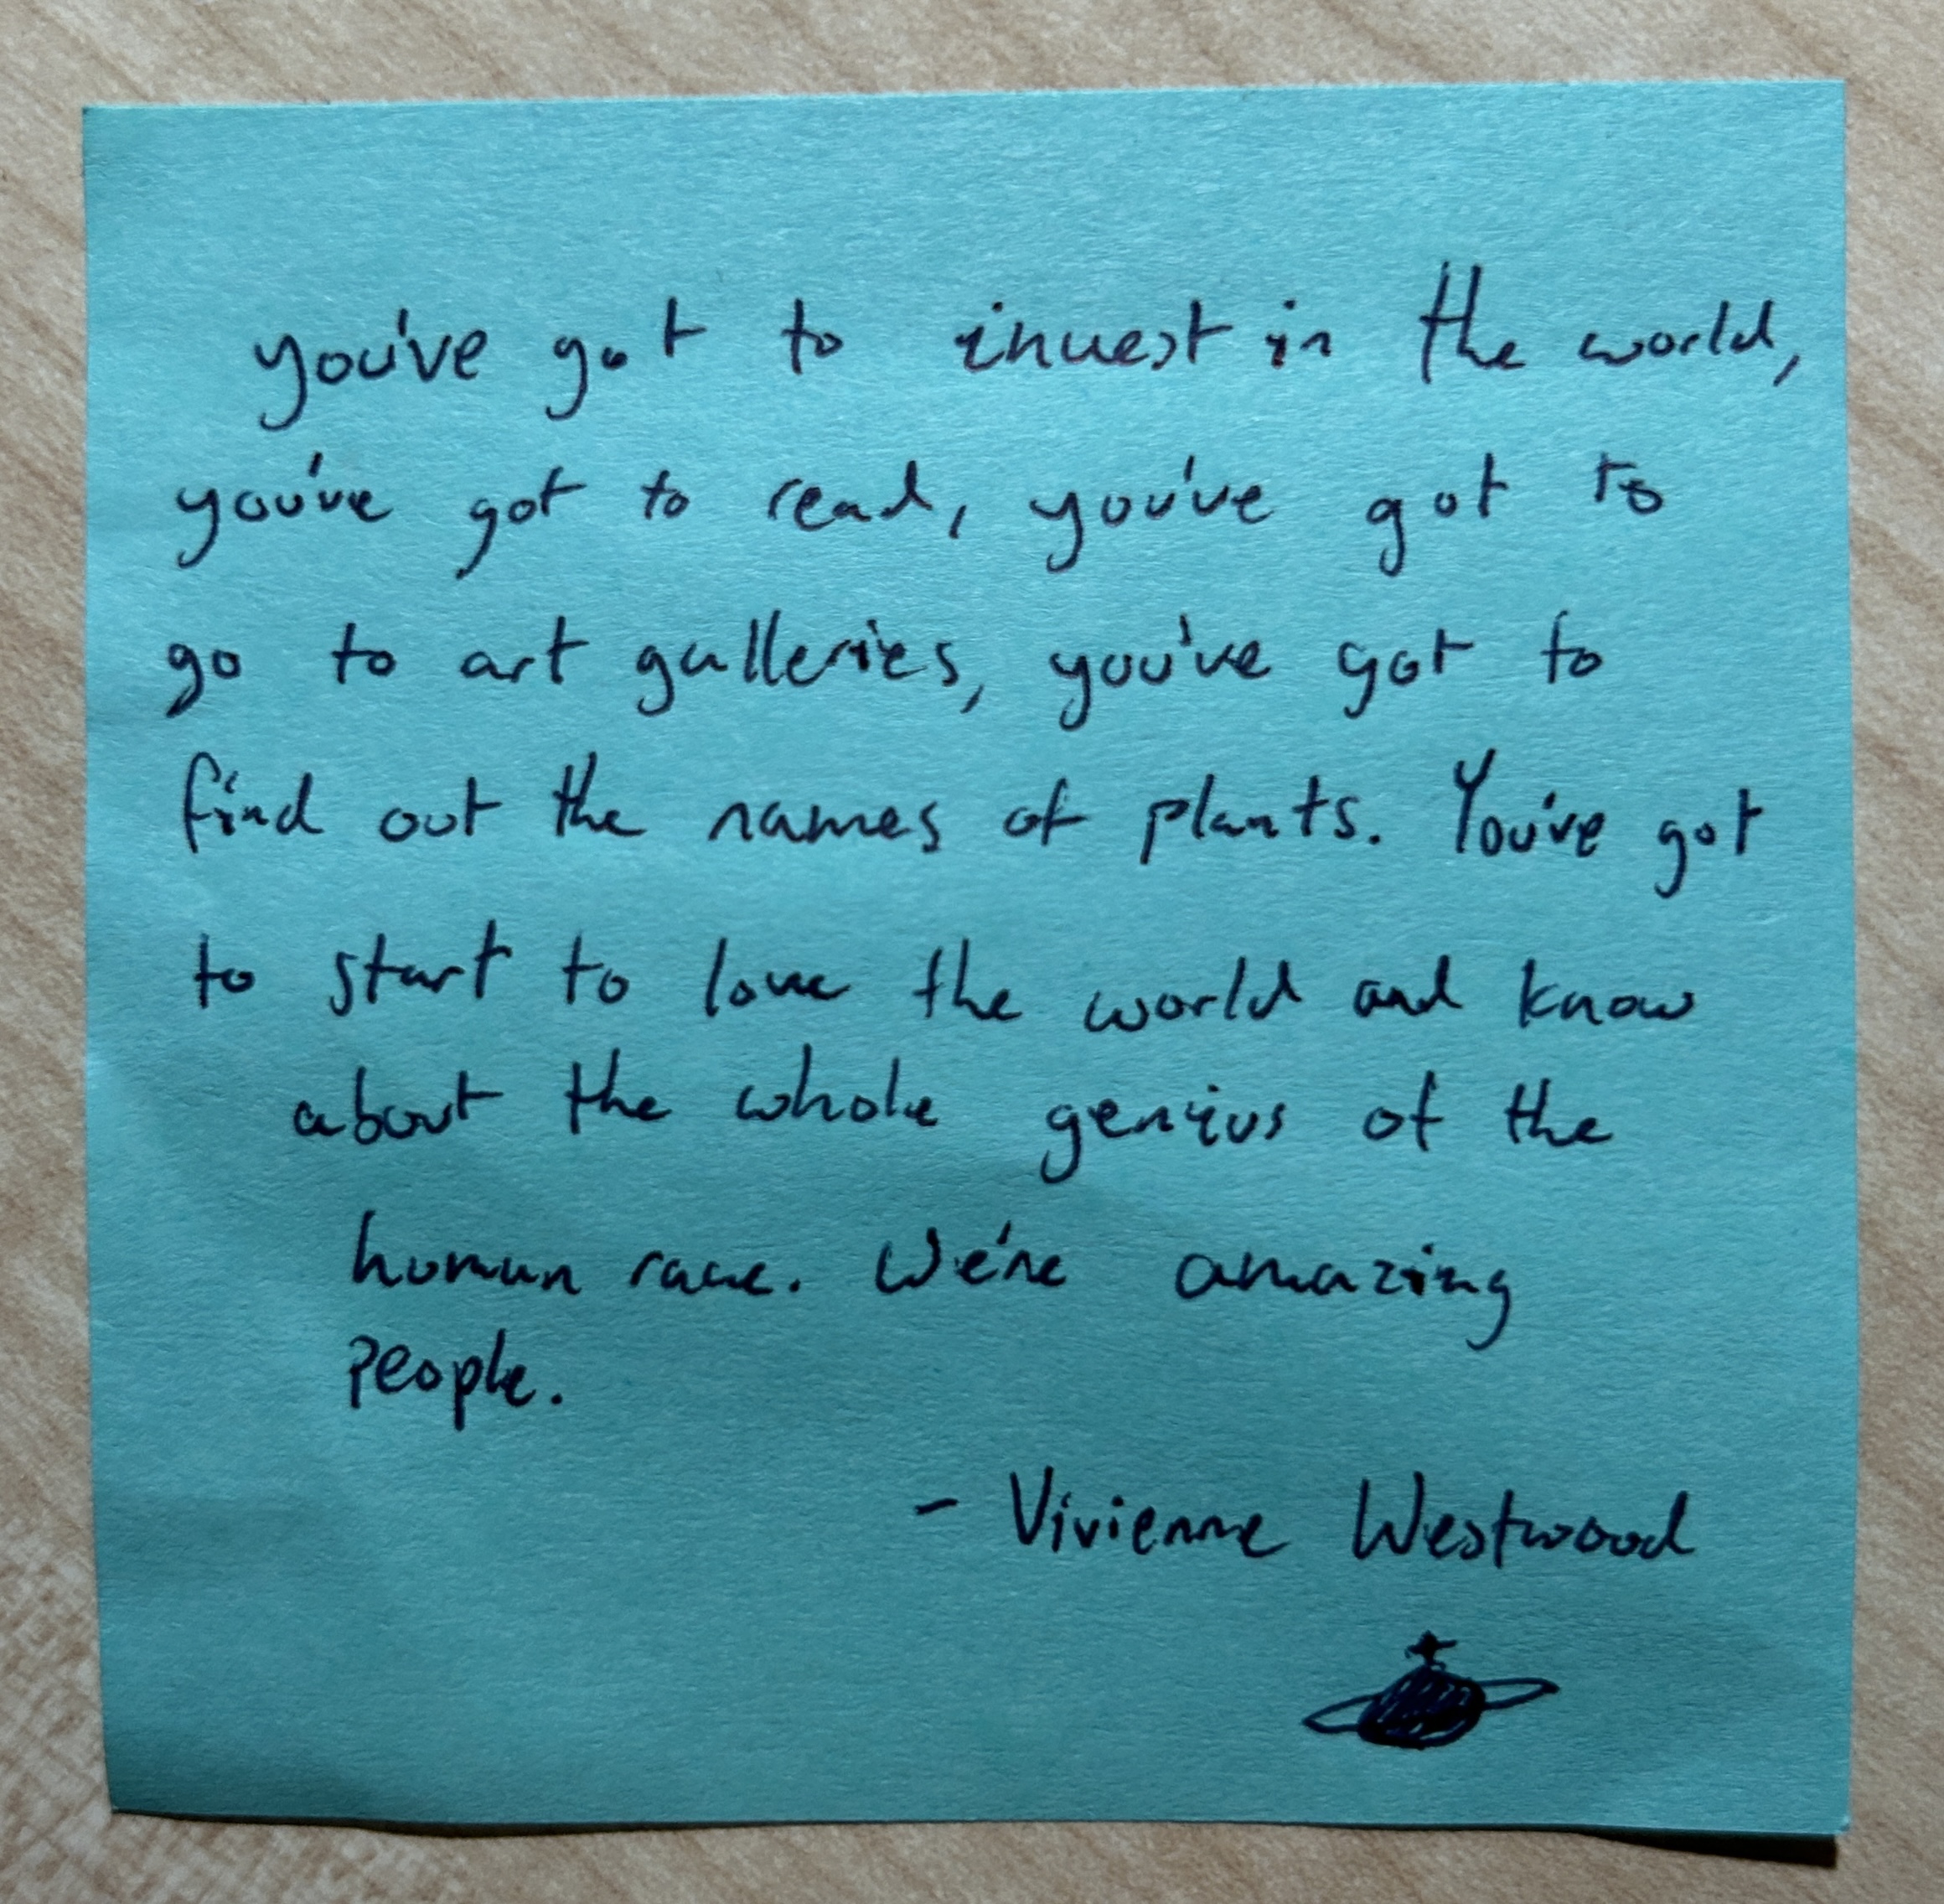 you've got to invest in the world,
you've got to read, you've got to
go to art galleries, you've got to
find out the names of plants. You've got
to start to love the world and know
about the whole genius of the
human race. We're amazing
people.
- Vivienne Westwood